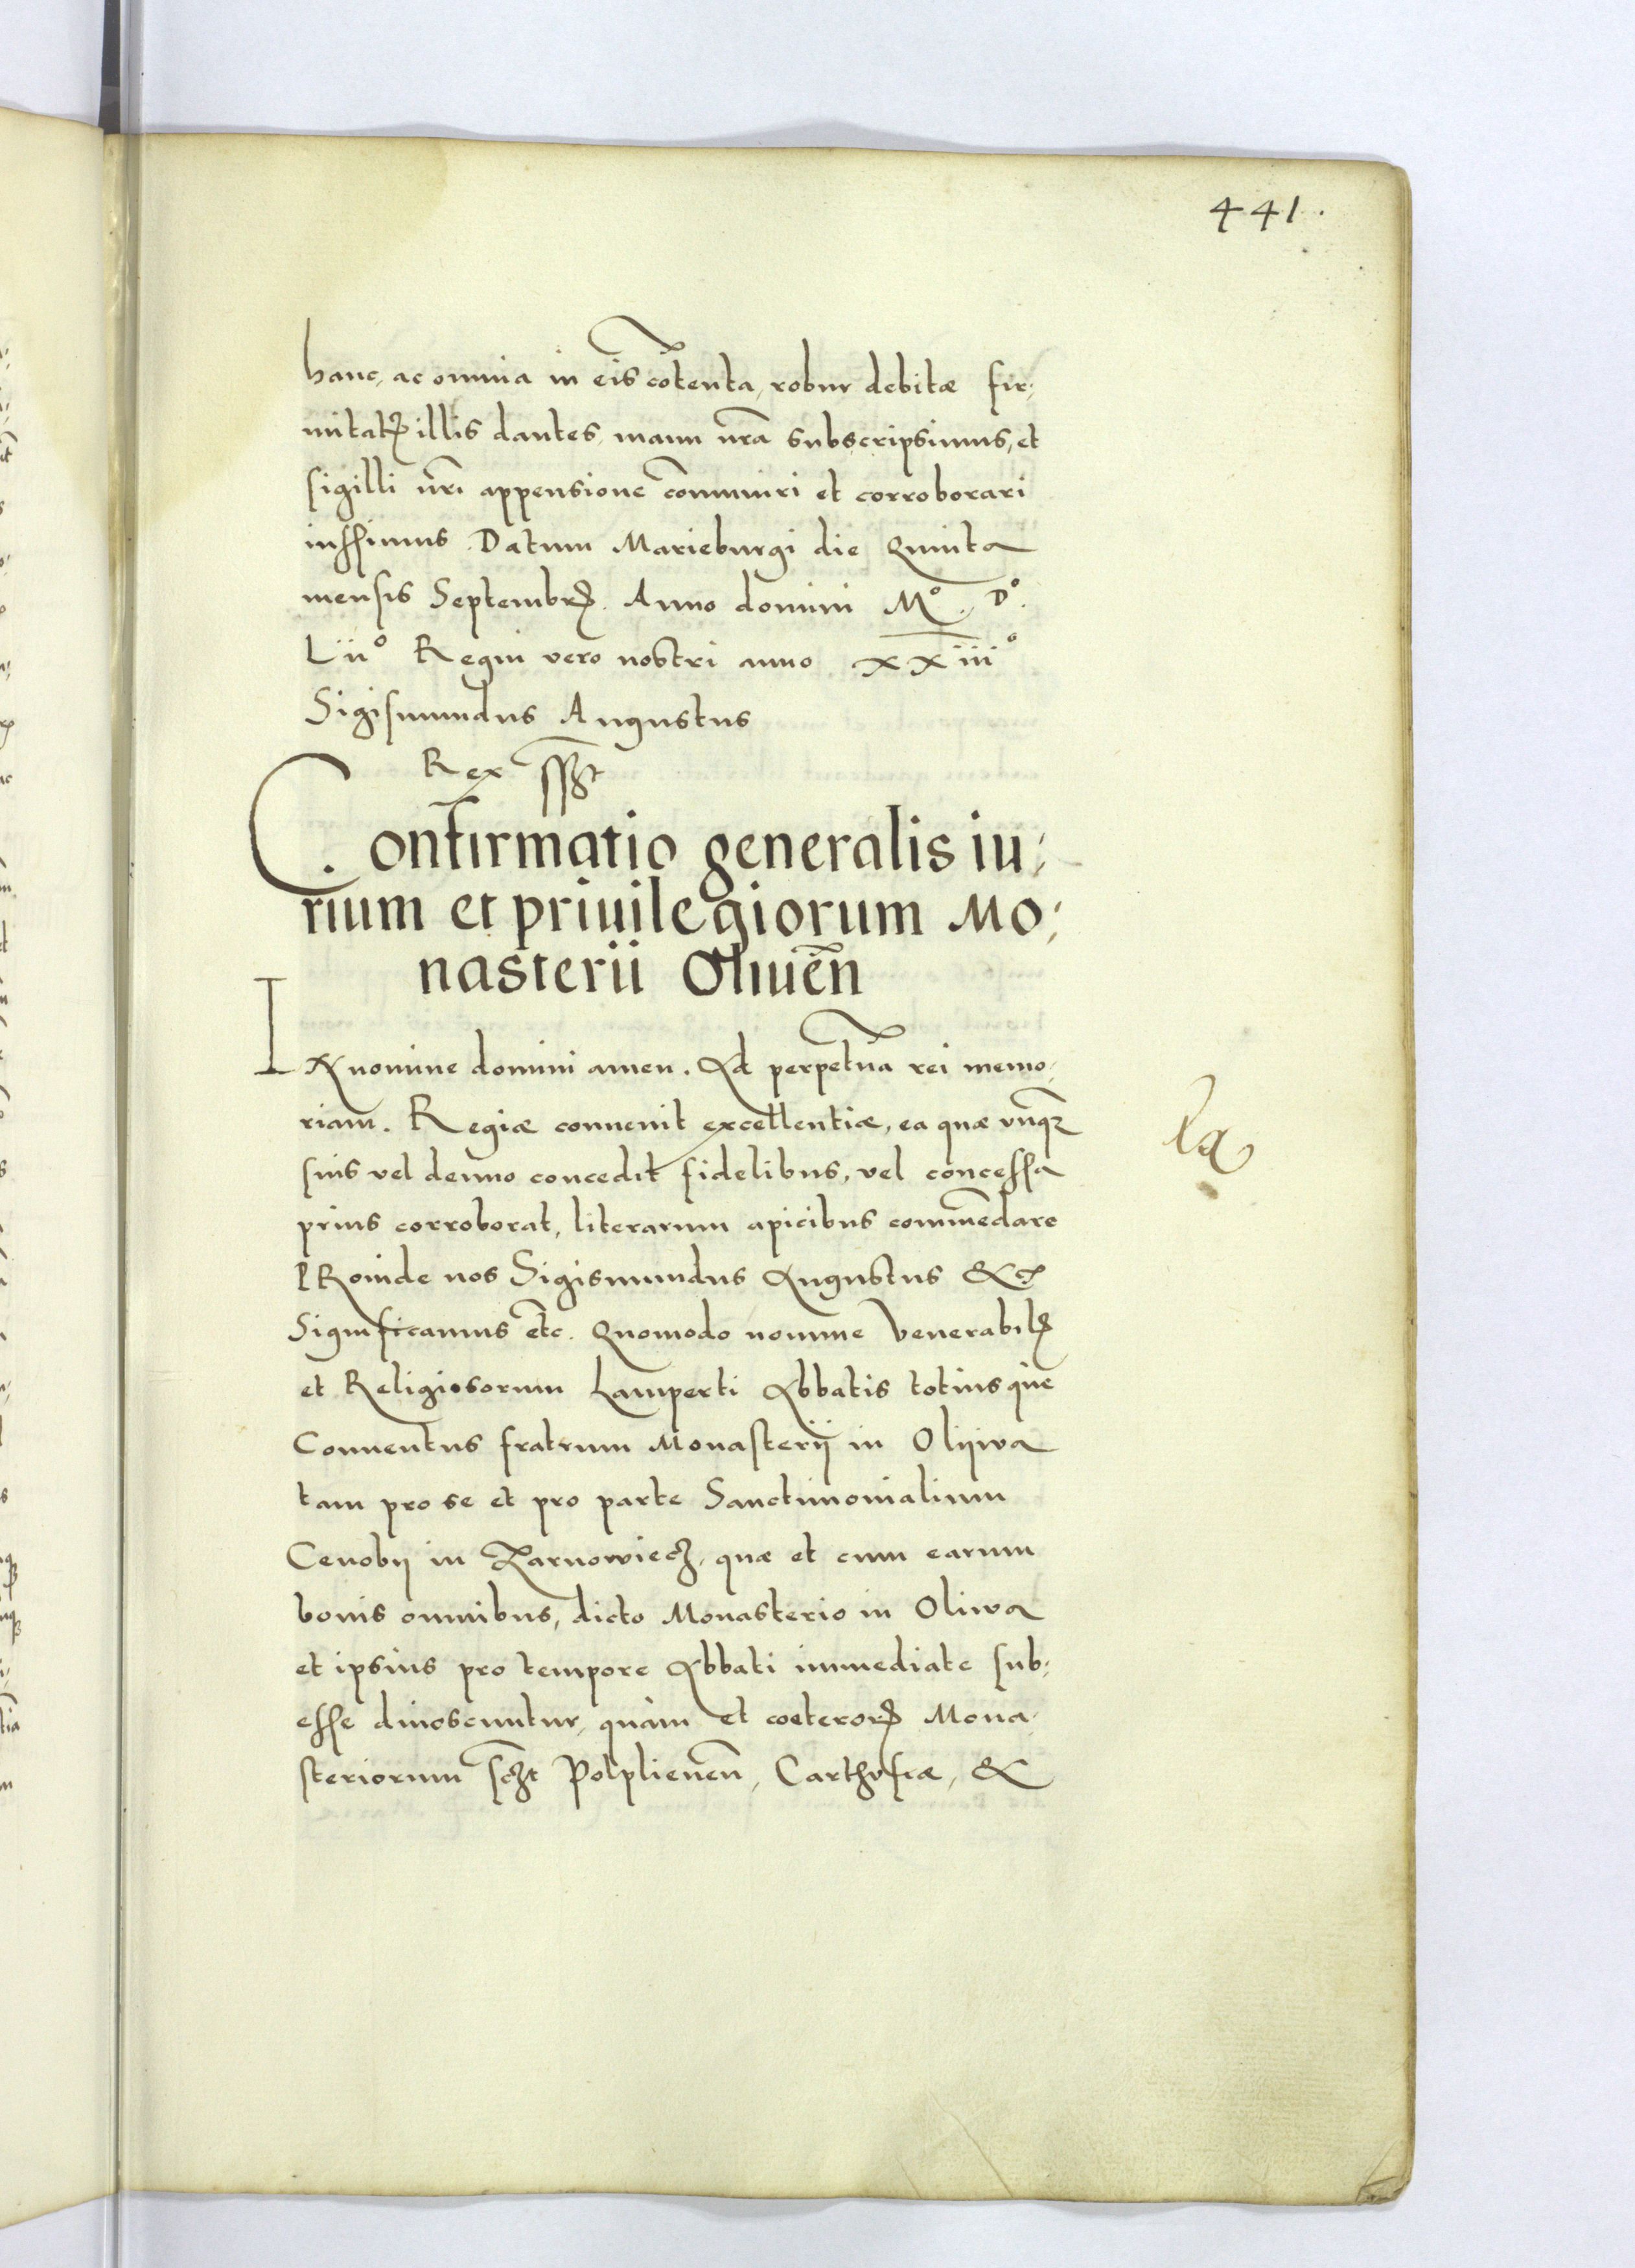 441.
hanc, ac omnia in eis cōtenta, robur debitæ fir,
mitatꝭ illis dantes, manu nrā subscripsimus, et
sigilli nrī appensione cōmuniri et corroborari
iussimus. Datum Marieburgi die Quinta
mensis Septembrꝭ. Anno domini Mº. Dº.
Liiº Regni vero nostri anno XXiiiº
Sigismundus Augustus
Rex sszt
Confirmatio generalis iu,
rium et priuilegiorum Mo,
nasterii Oliueñ
IN nomine domini amen. Ad perpetuā rei memo,
riam. Regiæ conuenit excellentiæ, ea quæ vnqꝫ
suis vel denuo concedit fidelibus, vel concessa
prius corroborat, literarum apicibus commēdare
PRoinde nos Sigismundus Augustus &c
Significamus etc. Quomodo nomine Venerabilꝭ
et Religiosorum Lamperti Abbatis totiusque
Conuentus fratrum Monasterij in Olijwa
tam pro se et pro parte Sanctimonialium
Cenobij in Zarnowiecz, quæ et cum earum
bonis omnibus, dicto Monasterio in Oliwa
et ipsius pro tempore Abbati immediate sub,
esse dinoscuntur, quàm et coeterorꝭ Mona,
steriorum sczt Polplieneñ, Carthusiæ, &